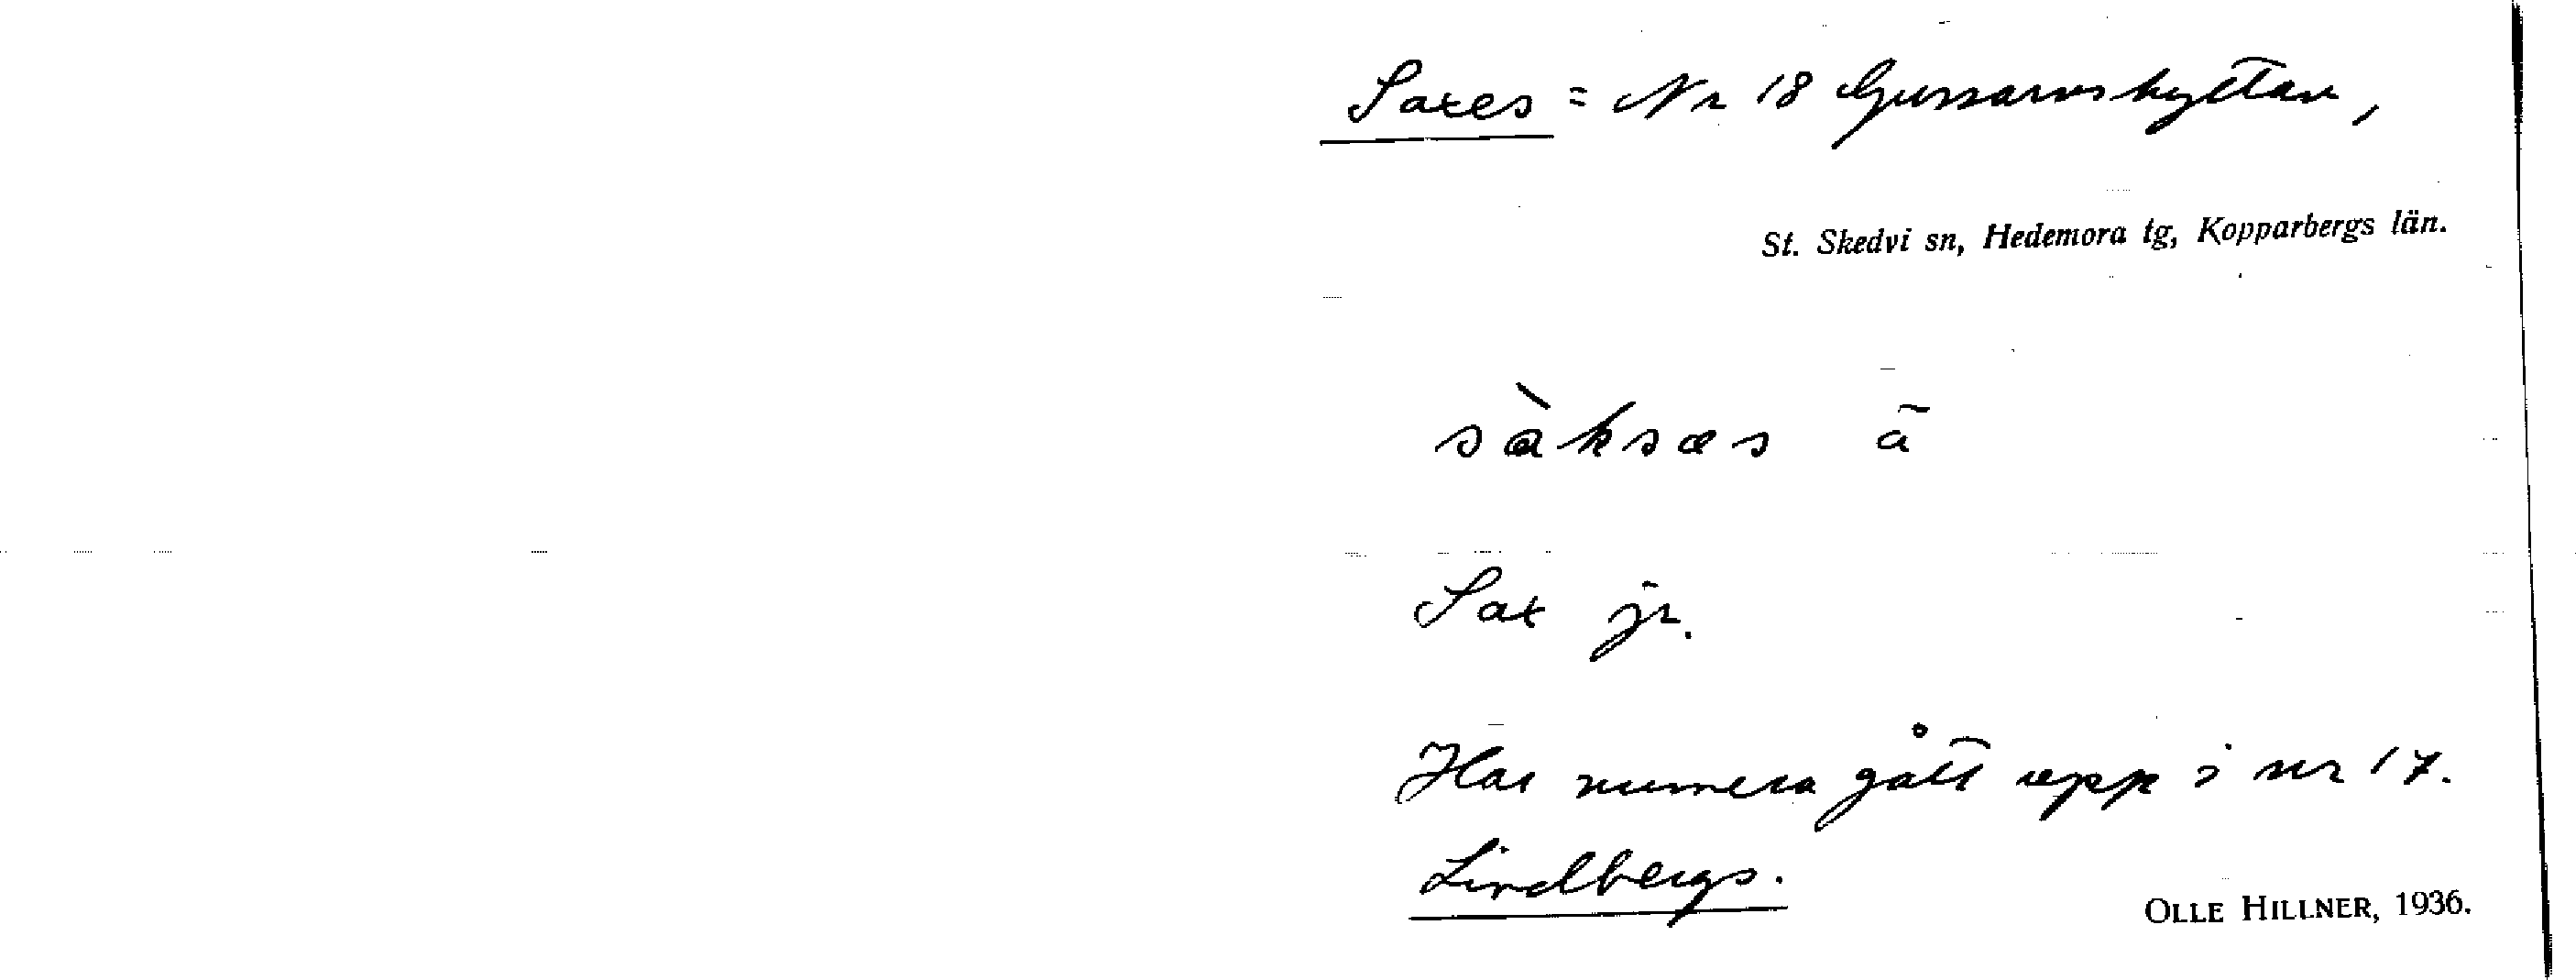 Saxes = Nr 18 Gussarvshyttan,
St. Skedvi sn, Hedemora tg, Kopparbergs län.
sàksæs ã
Sax jr.
Har numera gått upp i nr 17.
Lindbergs.
OLLE HILLNER, 1936.